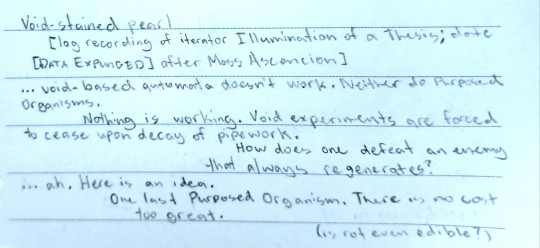 Void-stained pearl
[log recording of iterator Illumination of a Thesis; date
[DATA EXPUNGED] after Mass Ascencion]
... void-based automata doesn't work. Neither do Purposed
Organisms.
Nothing is working. Void experiments are forced
to cease upon decay of pipework.
How does one defeat an enemy
that always regenerates?
... ah. Here is an idea.
One last Purposed Organism. There is no cost
too great.
(is rot even edible?)